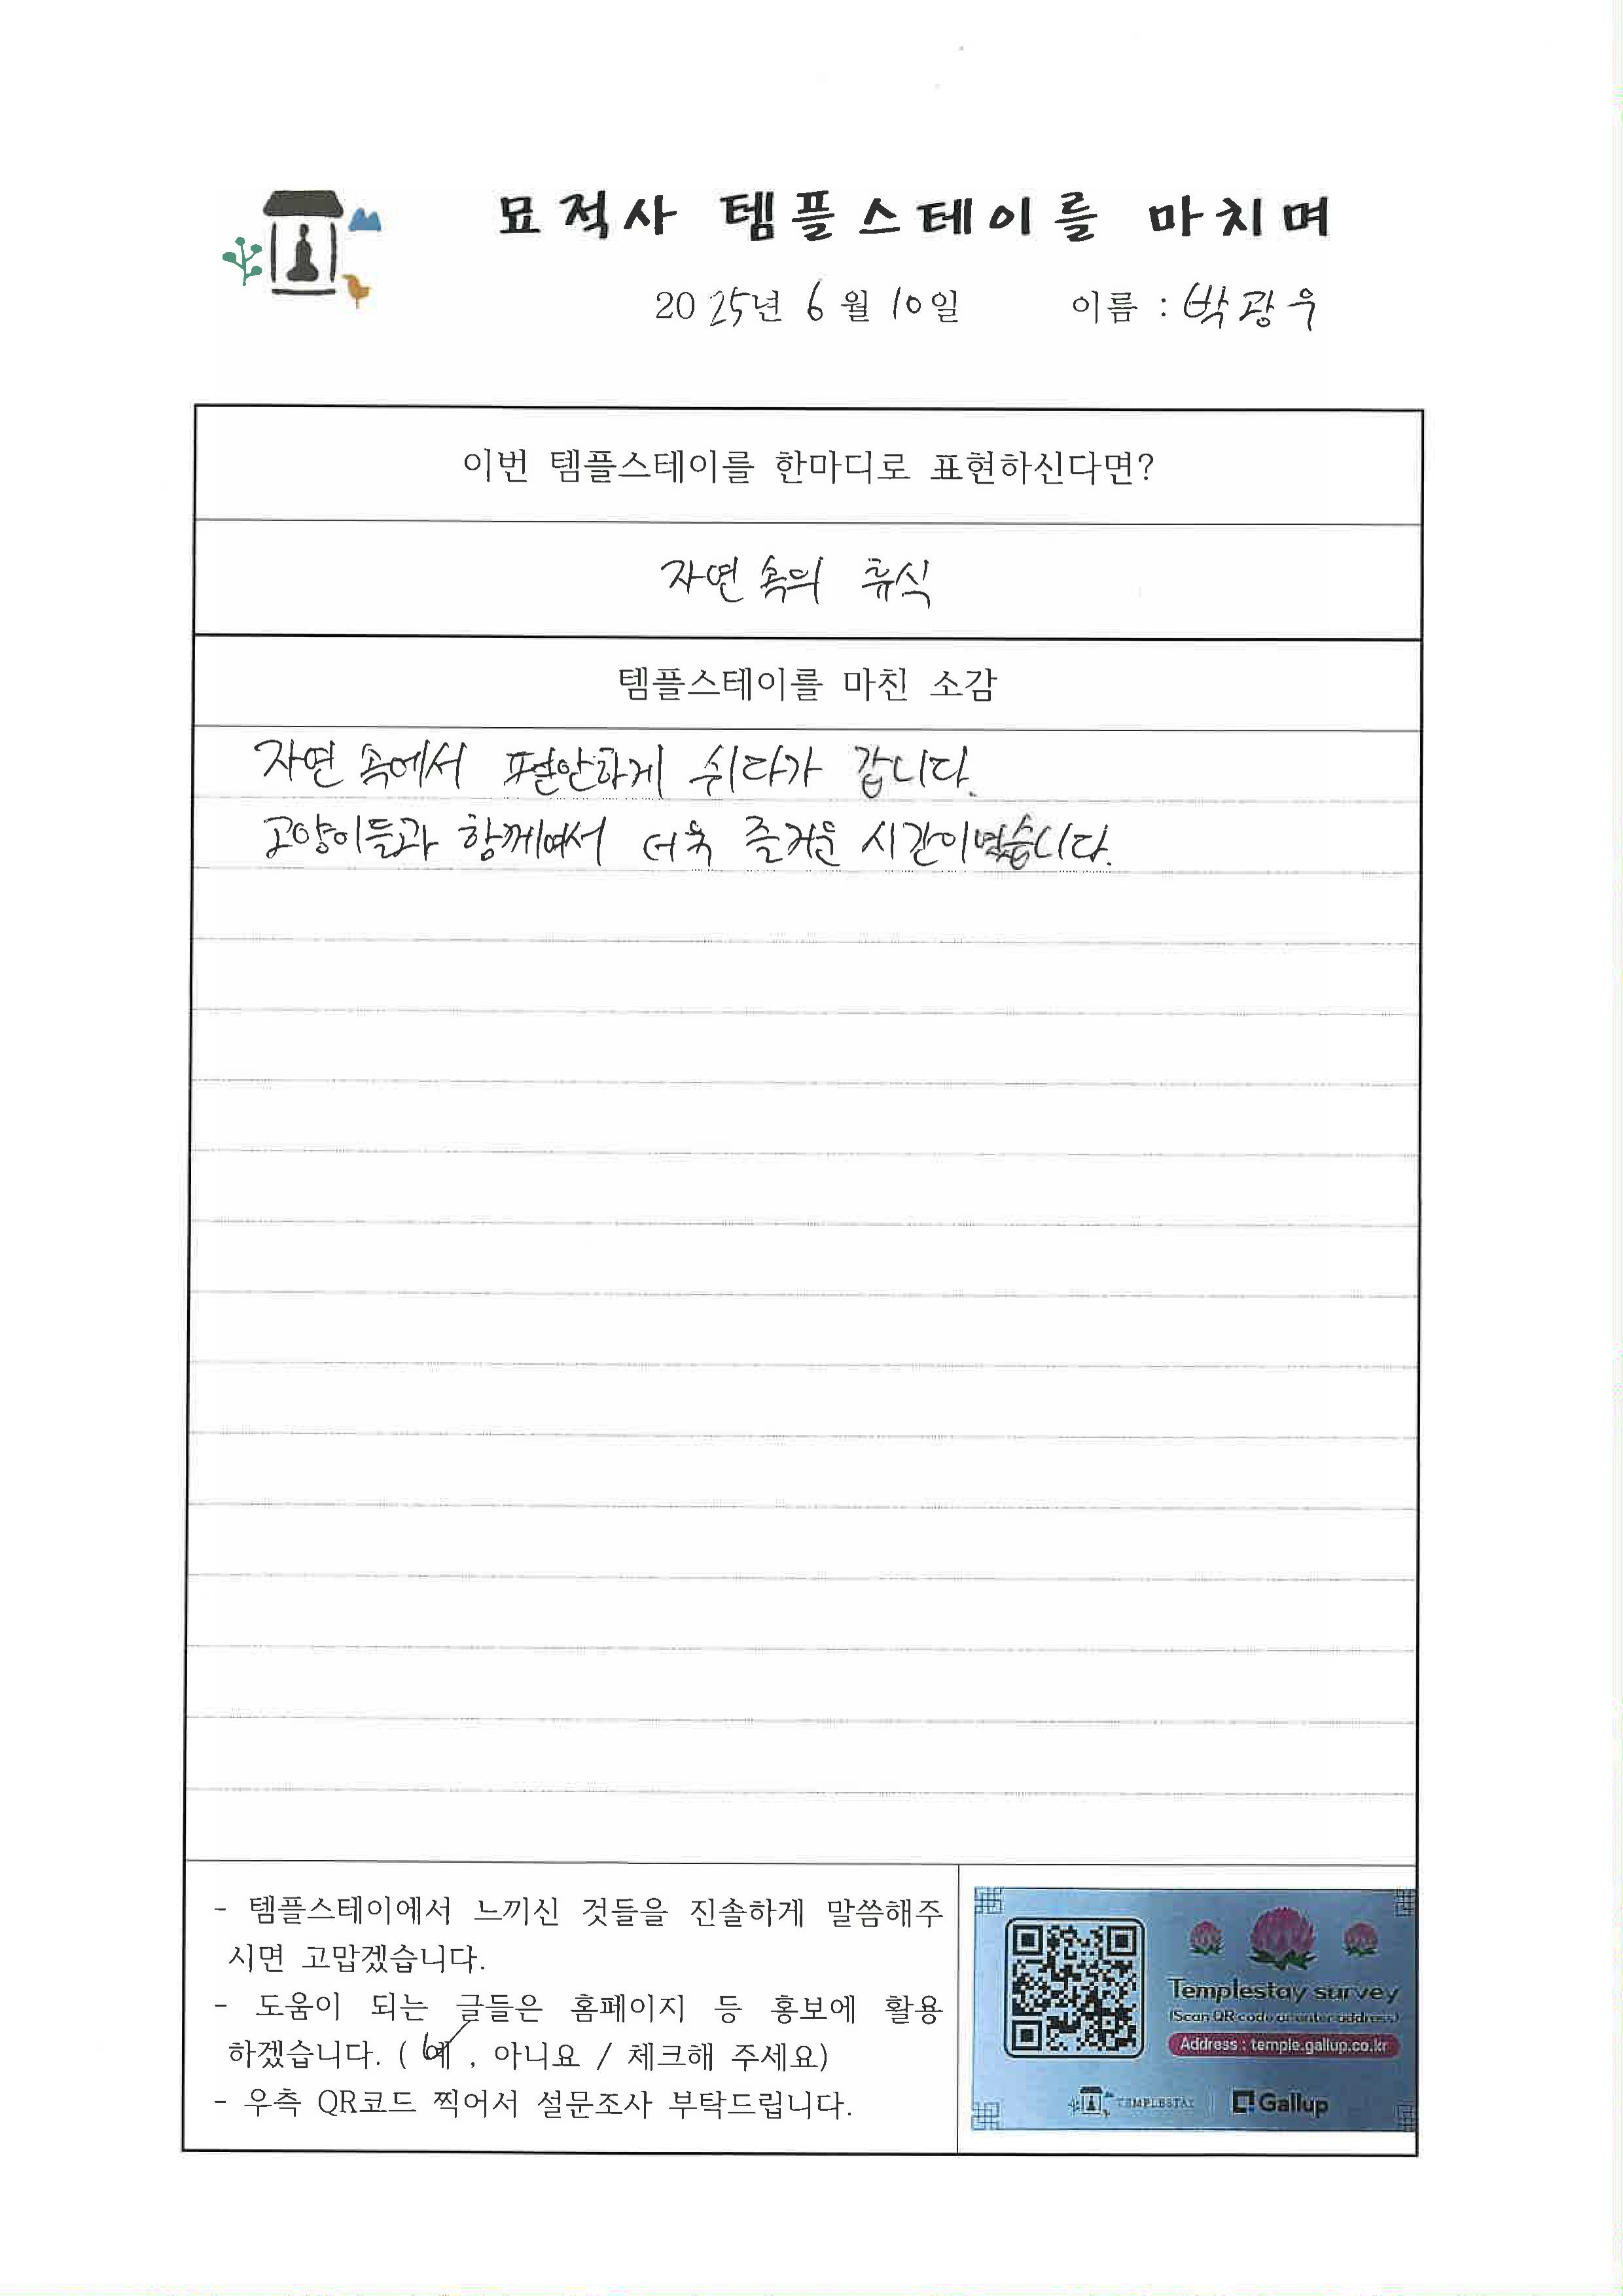 묘적사 템플스테이를 마치며
2025년 6월 10일 이름 : 박광우
이번 템플스테이를 한마디로 표현하신다면?
자연 속의 휴식
템플스테이를 마친 소감
자연 속에서 편안하게 쉬다가 갑니다.
고양이들과 함께여서 더욱 즐거운 시간이였습니다.
- 템플스테이에서 느끼신 것들을 진솔하게 말씀해주
시면 고맙겠습니다.
- 도움이 되는 글들은 홈페이지 등 홍보에 활용
하겠습니다. ( 예 , 아니요 / 체크해 주세요)
- 우측 QR코드 찍어서 설문조사 부탁드립니다.
Templestay survey
(Scan QR code or enter address)
Address : temple.gallup.co.kr
TEMPLESTAY Gallup